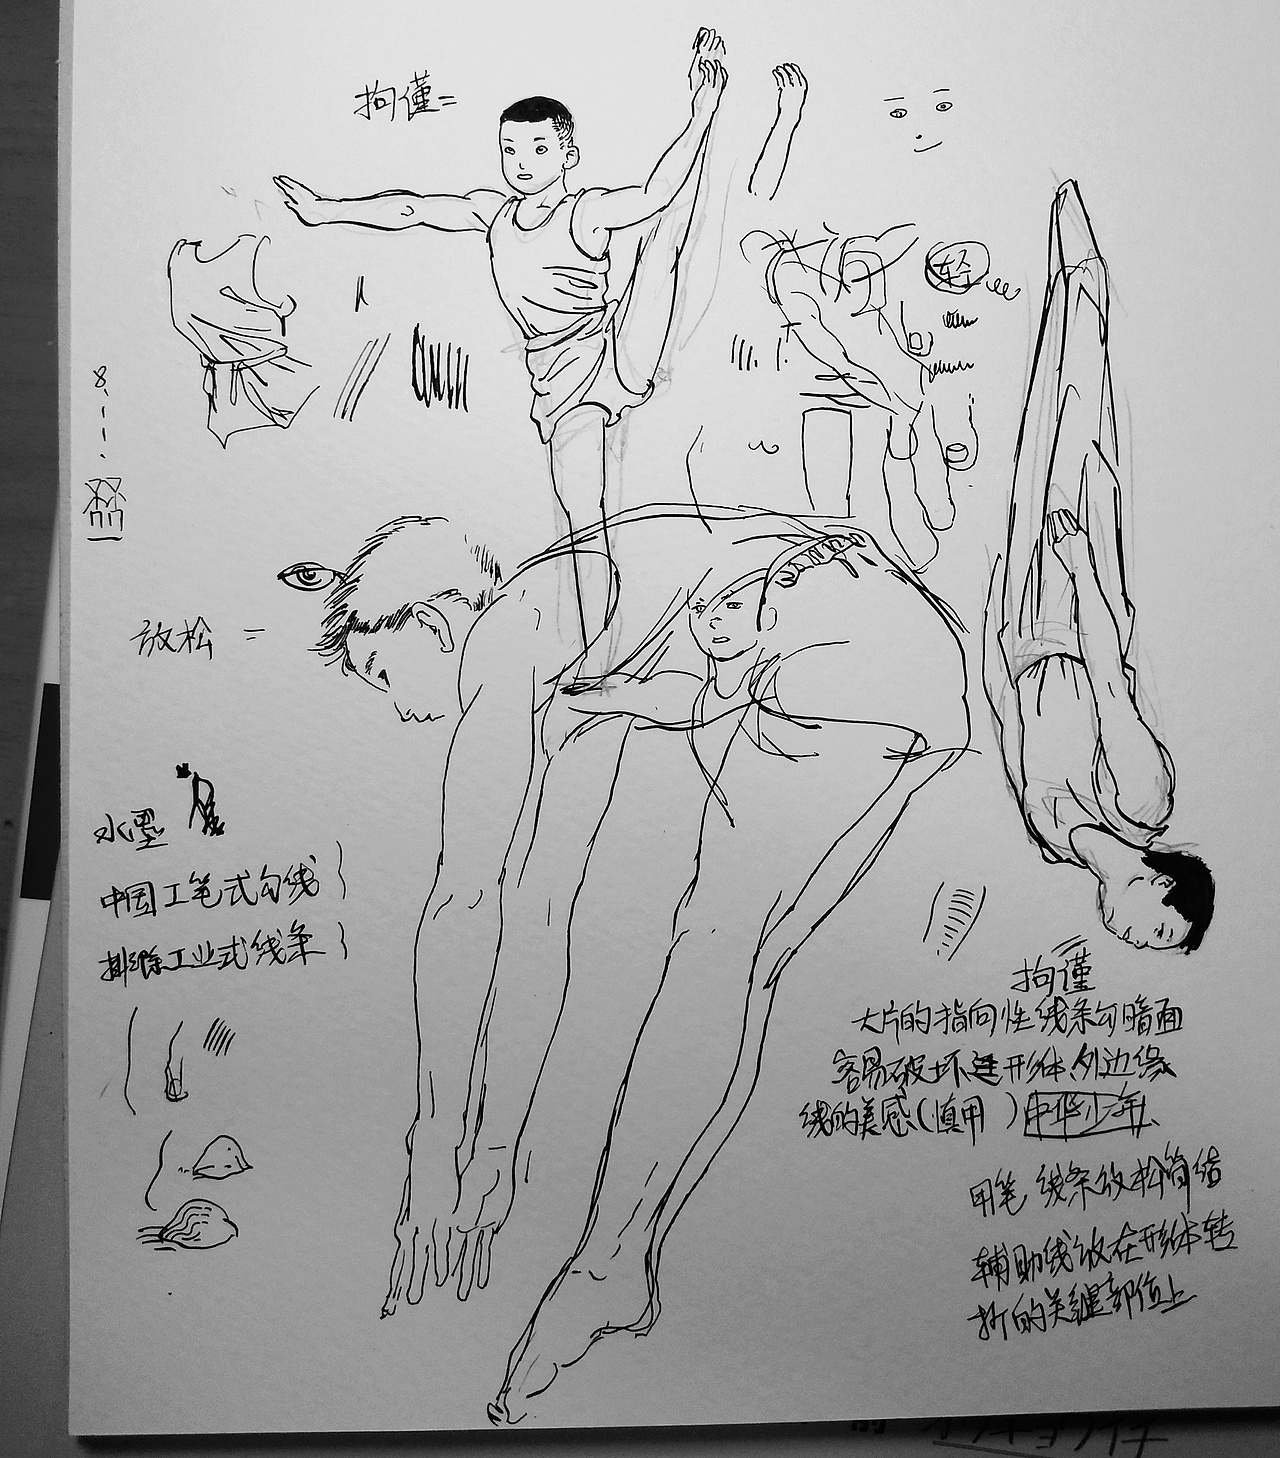 拘谨=
轻
放松 =
水墨
中国工笔式勾线
排除工业式线条
拘谨
大片的指向性线条勾暗面
容易破坏连形体外边缘
线的美感(慎用 ) 中华少年
用笔 线条放松简洁
辅助线放在形体转
折的关键部位上